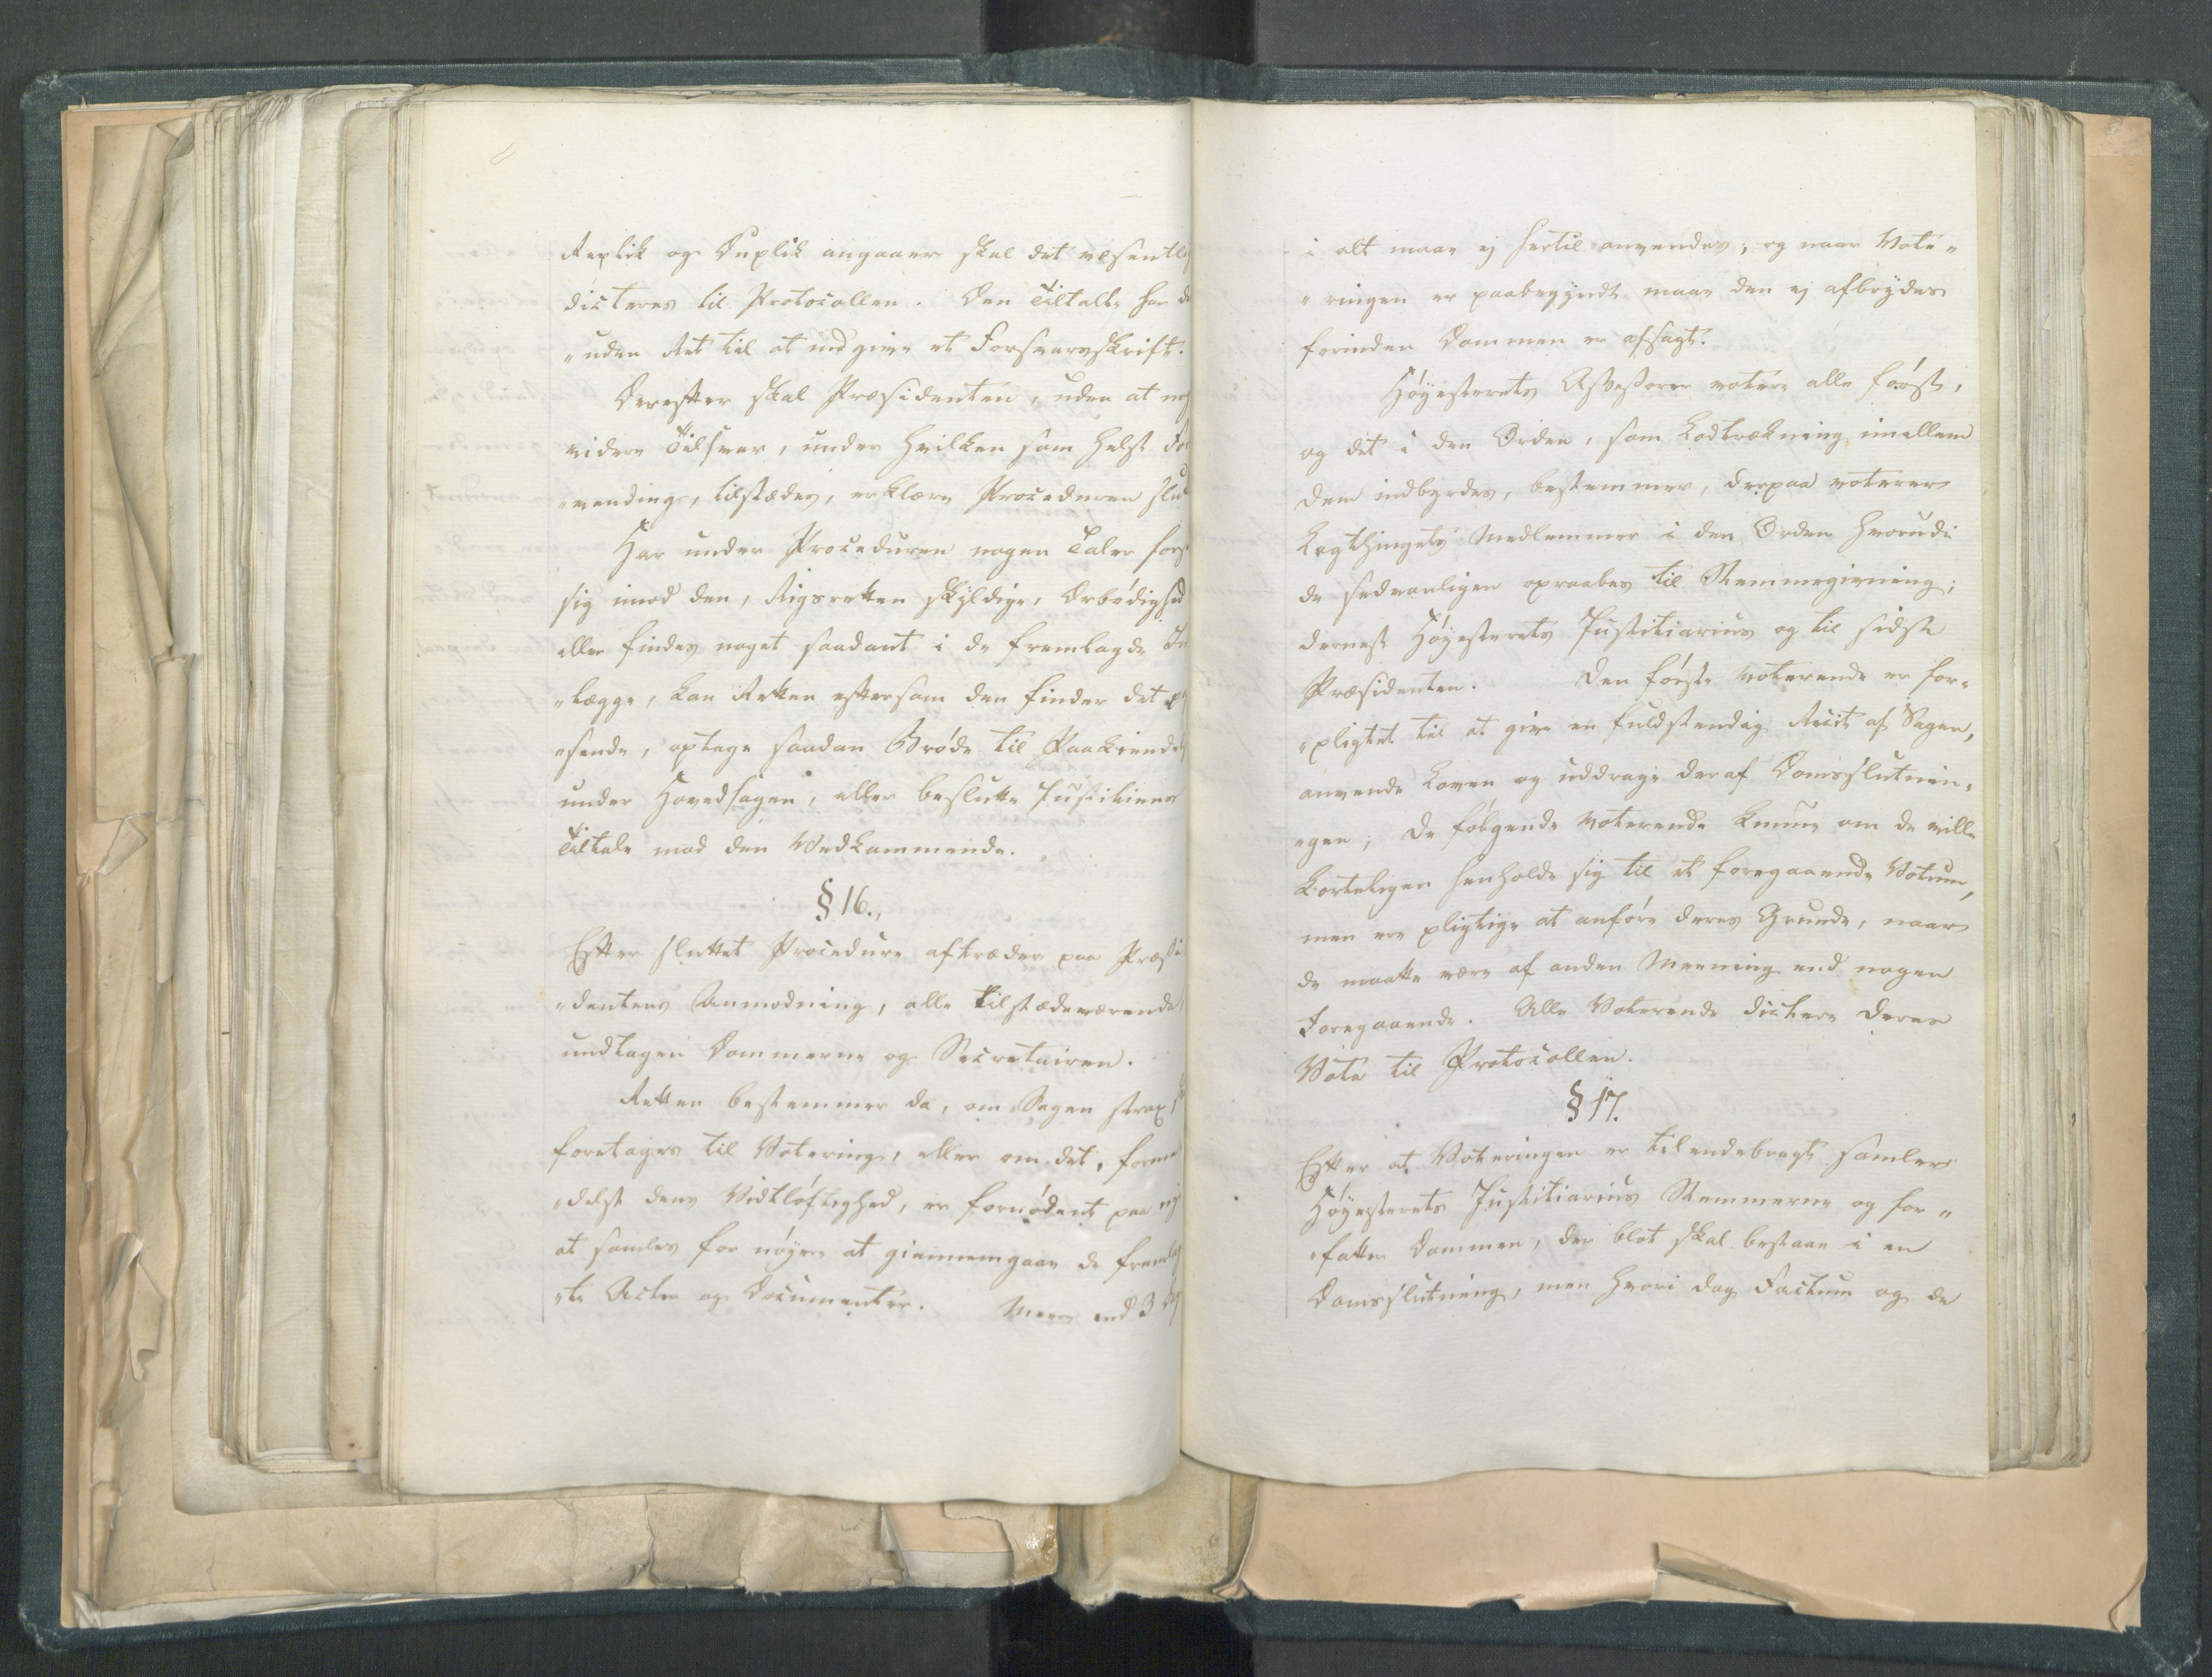 Replik og Duplik angaaer skal det væsentlig
dicteres til Protocollen. Den Tiltalte har de
„uden Ret til at indgive et Forsvarsskrift.
Derefter skal Præsidenten, uden at no
videre Tilsvar, under hvilken som helst For
„vending, tilstædes, erklære Proceduren slut
Har under Proceduren nogen Taler fors
sig imod den, Rigsretten skyldige, Ærbødighed
eller findes noget saadant i de fremlagde In
„lægge, kan Retten eftersom den finder det p
„sende, optage saadan Brøde til Paakiendel
under Hovedsagen, eller beslutte Justitiens
Tiltale mod den Vedkommende.
§ 16.,
Efter sluttet Procedure aftræder paa Præsi
„dentens Anmodning, alle tilstædeværende,
undtagen Dommerne og Secretairen.
Retten bestemmer da, om Sagen strax
foretages til Votering, eller om det, forme
„delst dens Vidtløftighed, er fornødent paa ny
at samles for nøyere at giennemgaae de fremlag
„te Acter og Documenter. Meer end 3
i alt maae ej hertil anvendes; og naar Vote„
„ringen er paabegyndt maae den ej afbrydes
forinden Dommen er afsagt.
Høyesterets Assessorer votere alle først,
og det i den Orden, som Lodtrækning imellem
dem indbyrdes, bestemmer, derpaa voterer
Lagthingets Medlemmer i den Orden hvorudi
de sædvanligen opraabes til Stemmegivning;
dernest Høyesterets Justitiarius og til sidst
Præsidenten. Den første Voterende er for„
„pligtet til at give en fuldstendig Recit af Sagen,
anvende Loven og uddrage deraf Domsslutnin„
„gen; De følgende Voterende kunne om de ville
korteligen henholde sig til et foregaaende Votum,
men ere pligtige at anføre deres Grunde, naar
de maatte være af anden Meening end nogen
Foregaaende. Alle Voterende dictere deres
Vota til Protocollen.
§ 17.
Efter at Voteringen er tilendebragt samler
Høyesterets Justitiarius Stemmerne og for„
„fatter Dommen, der blot skal bestaae i en
Domsslutning, men hvori dog Factum og de